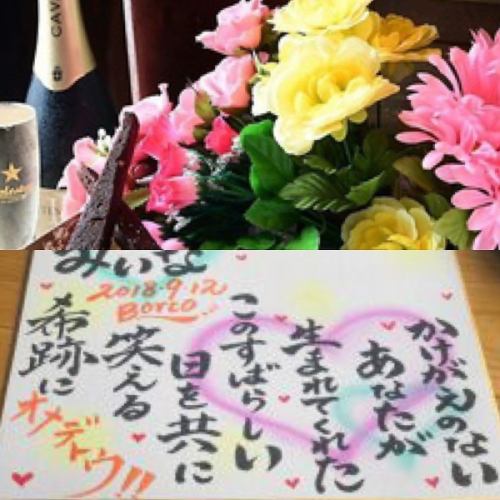 CAV
かけがえのない
あなたが
生まれてくれた
このすばらしい
日を共に
笑える
希跡に
みいな
2018.9.12
BORCO
オメデトウ!!